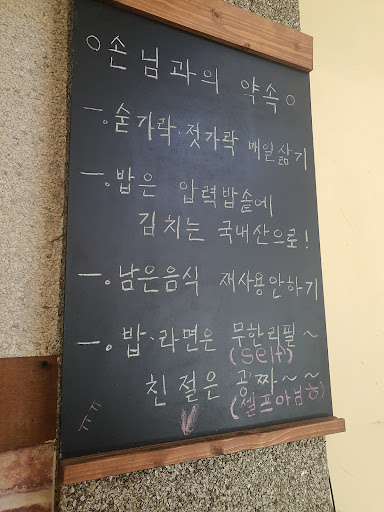 ○손님과의 약속○
一. 숟가락·젓가락 매일삶기
一. 밥은 압력밥솥에
김치는 국내산으로!
一. 남은음식 재사용안하기
一. 밥·라면은 무한리필~
(self)
친절은 공짜~~
(셀프아님ㅎ)